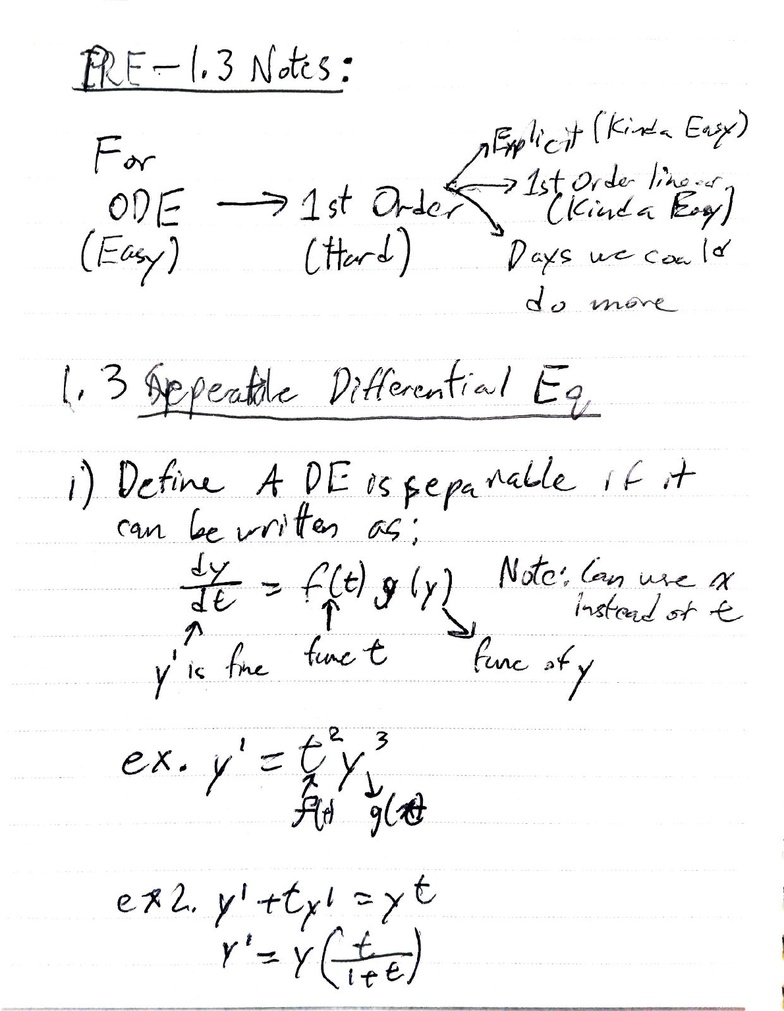 PRE-1.3 Notes:
For ODE (Easy) → 1st Order (Hard)
→ Explicit (Kinda Easy)
→ 1st Order linear (Kinda Easy)
→ Days we could do more
1.3 Seperatble Differential Eq
i) Define A DE is separable if it
can be written as:
dy/dt = f(t) g(y)
Note: Can use x
instead of t
y' is fine
func t
func of y
ex. y' = t²y³
f(t) g(
ex2. y' + ty' = yt
y' = y(t/(1+t))